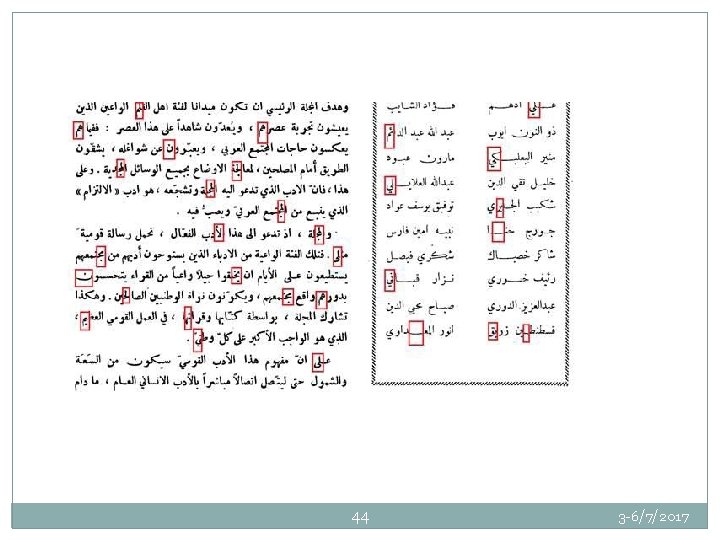 وهدف المجلة الرئيسي ان تكون ميدانا لفئة اهل القلم الواعين الذين
يعيشون تجربة عصرهم ، ويعدّون شاهداً على هذا العصر : ففيما هم
يعكسون حاجات المجتمع العربي ، ويعبّرون عن شواغله ، يشقّون
الطريق أمام المصلحين ، لمعالجة الاوضاع بجميع الوسائل المجدية . وعلى
هذا ، فانّ الأدب الذي تدعو اليه المجلة وتشجّعه ، هو ادب « الالتزام »
الذي ينبع من المجتمع العربيّ ويصبّ فيه .
والمجلة ، اذ تدعو الى هذا الأدب الفعّال ، تحمل رسالة قومية
مثلى . فتلك الفئة الواعية من الادباء الذين يستوحون أدبهم من مجتمعهم
يستطيعون على الأيام ان يخلقوا جيلاً واعياً من القراء يتحسسون
بدورهم واقع مجتمعهم ، ويكوّنون نواة الوطنيين الصالحين . وهكذا
تشارك المجلة ، بواسطة كتّابها وقرائها ، في العمل القومي العظيم ،
الذي هو الواجب الأكبر على كلّ وطنيّ .
على انّ مفهوم هذا الأدب القوميّ سيكون من السّعة
والشمول حتى ليتّصل اتصالاً مباشراً بالأدب الانساني العام ، ما دام
علي ادهم
فؤاد الشايب
ذو النون ايوب
عبد الله عبد الدائم
منير البعلبكي
مارون عبود
خليل تقي الدين
عبدالله العلايلي
شكيب الجابري
توفيق يوسف عواد
جورج حنا
نبيه امين فارس
شاكر خصباك
شكري فيصل
رئيف خوري
نزار قباني
عبدالعزيز الدوري
صباح محي الدين
قسطنطين زريق
انور المعداوي
44
3-6/7/2017